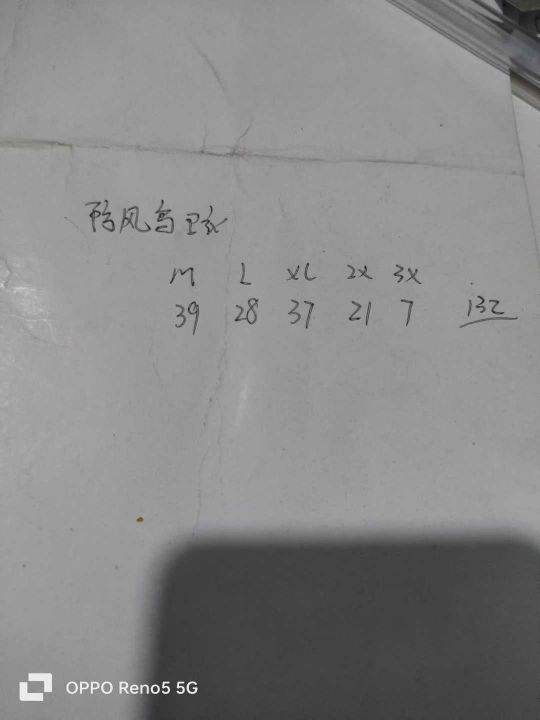 防风鸟 里衣
M L XL 2X 3X
39 28 37 21 7 132
OPPO Reno5 5G